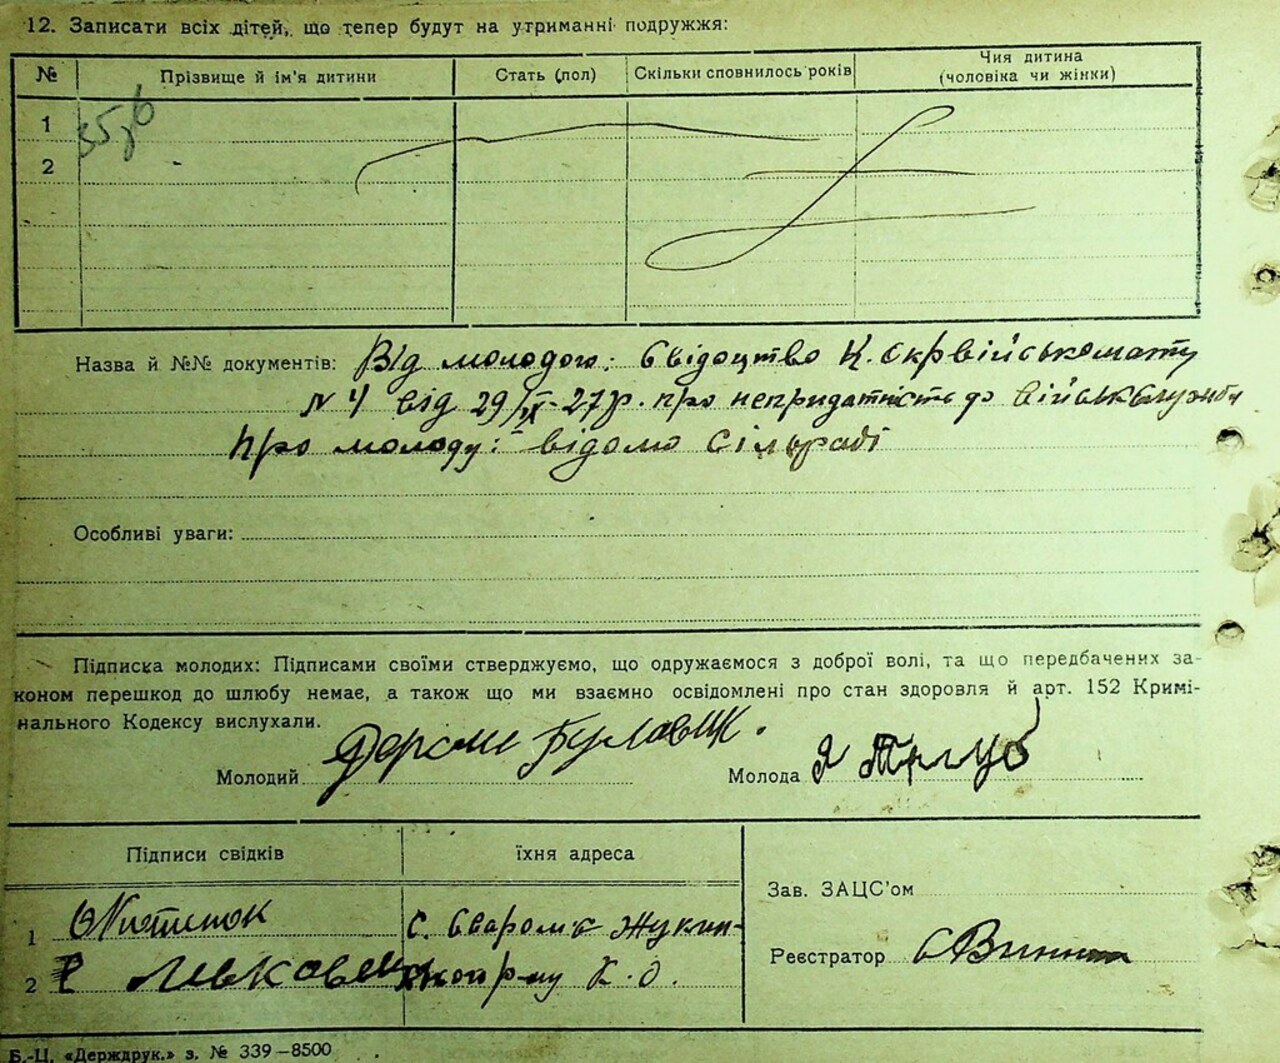 12. Записати всіх дітей, що тепер будут на утриманні подружжя:
№ Прізвище й ім'я дитини Стать (пол) Скільки сповнилось років Чия дитина (чоловіка чи жінки)
1
2
Назва й №№ документів: Від молодого: Свідоцтво К. Окрвійськомату
№ 4 від 29/IX-27р. про непридатність до військслужби
Про молоду: відомо Сільраді
Особливі уваги:
Підписка молодих: Підписами своїми стверджуємо, що одружаємося з доброї волі, та що передбачених за-
коном перешкод до шлюбу немає, а також що ми взаємно освідомлені про стан здоровля й арт. 152 Кримі-
нального Кодексу вислухали.
Молодий Булавик. Молода Я
Підписи свідків їхня адреса
Зав. ЗАЦС'ом
1 с. Сваром'є Жукин-
2 р-ну К.О.
Реєстратор
Б.-Ц. «Держдрук.» з. № 339—8500